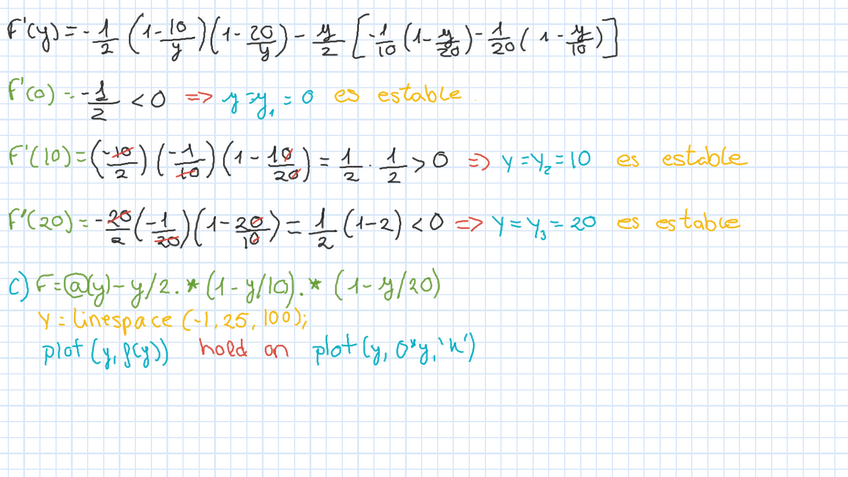 F'(y) = -1/2 (1-10/y)(1-20/y) - y/2 [-1/10 (1-y/20) - 1/20 (1-y/10)]
F'(0) = -1/2 < 0 => y=y₁=0 es estable
F'(10) = (-10/2)(-1/10)(1-10/20) = 1/2 · 1/2 > 0 => y=y₂=10 es estable
F'(20) = -20/2 (-1/20)(1-20/10) = 1/2 (1-2) < 0 => y=y₃=20 es estable
c) F=@(y)-y/2.*(1-y/10).*(1-y/20)
Y = linespace (-1,25,100);
plot(y,f(y)) hold on plot(y,0*y,'k')